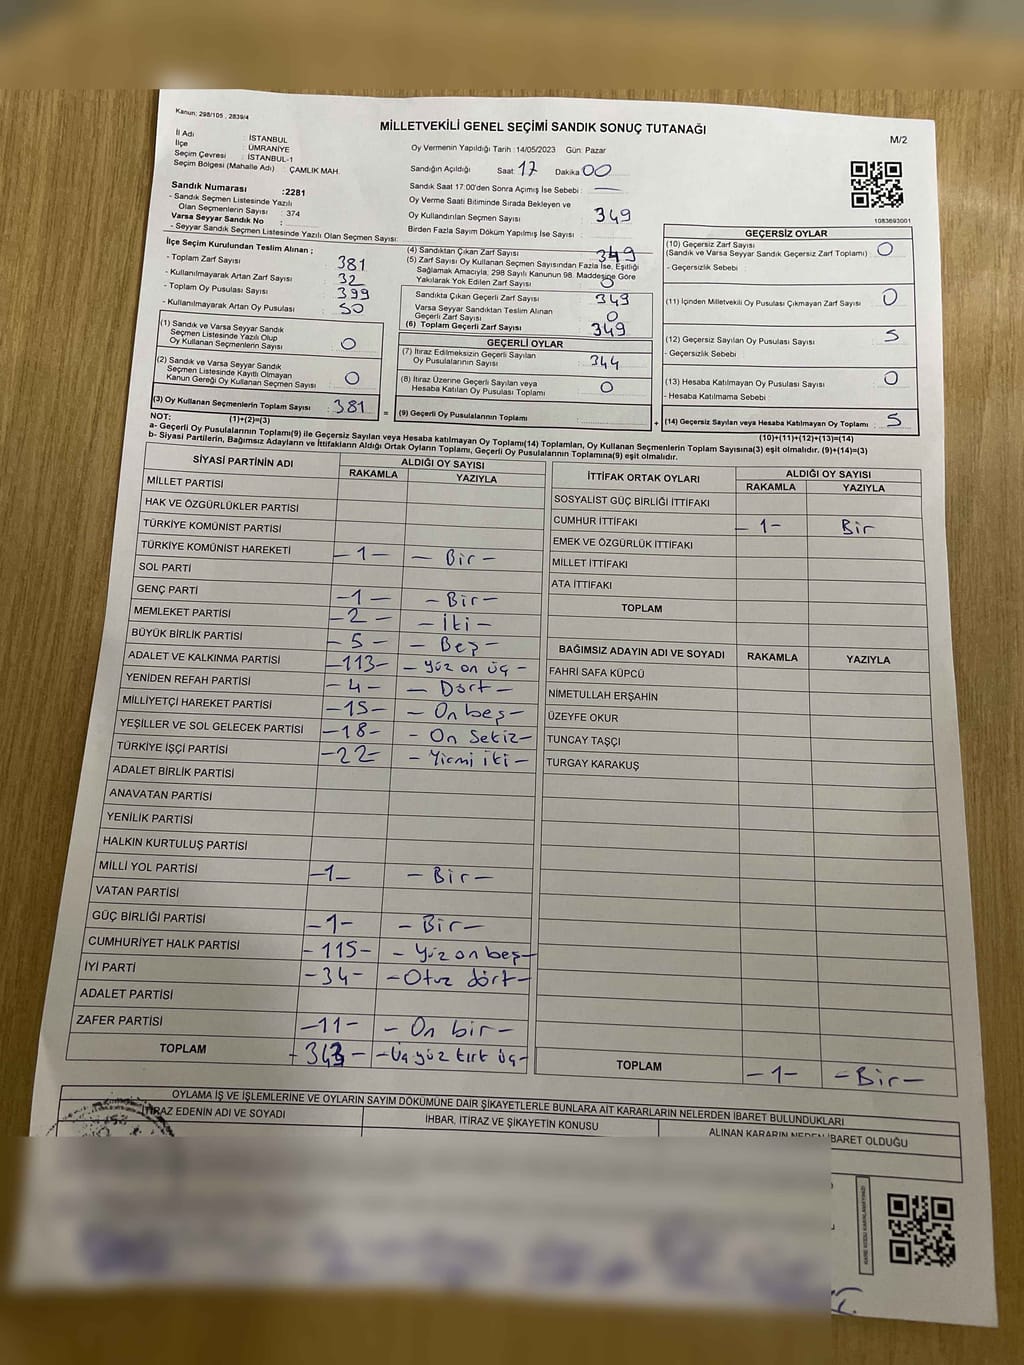 Kanun: 298/105 , 2839/4
MİLLETVEKİLİ GENEL SEÇİMİ SANDIK SONUÇ TUTANAĞI
M/2
İl Adı : İSTANBUL
İlçe : ÜMRANİYE
Seçim Çevresi : İSTANBUL-1
Seçim Bölgesi (Mahalle Adı) : ÇAMLIK MAH.
Sandık Numarası :2281
- Sandık Seçmen Listesinde Yazılı
Olan Seçmenlerin Sayısı : 374
Varsa Seyyar Sandık No :
- Seyyar Sandık Seçmen Listesinde Yazılı Olan Seçmen Sayısı:
Oy Vermenin Yapıldığı Tarih :14/05/2023 Gün: Pazar
Sandığın Açıldığı Saat: 17 Dakika 00
Sandık Saat 17.00'den Sonra Açımış İse Sebebi : —
Oy Verme Saati Bitiminde Sırada Bekleyen ve
Oy Kullandırılan Seçmen Sayısı : 349
Birden Fazla Sayım Döküm Yapılmış İse Sayısı :
1083693001
İlçe Seçim Kurulundan Teslim Alınan ;
- Toplam Zarf Sayısı : 381
- Kullanılmayarak Artan Zarf Sayısı : 32
- Toplam Oy Pusulası Sayısı : 399
- Kullanılmayarak Artan Oy Pusulası : 50
(1) Sandık ve Varsa Seyyar Sandık
Seçmen Listesinde Yazılı Olup
Oy Kullanan Seçmenlerin Sayısı : 0
(2) Sandık ve Varsa Seyyar Sandık
Seçmen Listesinde Kayıtlı Olmayan
Kanun Gereği Oy Kullanan Seçmen Sayısı : 0
(3) Oy Kullanan Seçmenlerin Toplam Sayısı : 381
(1)+(2)=(3)
(4) Sandıktan Çıkan Zarf Sayısı : 349
(5) Zarf Sayısı Oy Kullanan Seçmen Sayısından Fazla İse, Eşitliği
Sağlamak Amacıyla, 298 Sayılı Kanunun 98. Maddesine Göre
Yakılarak Yok Edilen Zarf Sayısı : 0
Sandıkta Çıkan Geçerli Zarf Sayısı : 349
Varsa Seyyar Sandıktan Teslim Alınan
Geçerli Zarf Sayısı : 0
(6) Toplam Geçerli Zarf Sayısı : 349
GEÇERLİ OYLAR
(7) İtiraz Edilmeksizin Geçerli Sayılan
Oy Pusulalarının Sayısı : 344
(8) İtiraz Üzerine Geçerli Sayılan veya
Hesaba Katılan Oy Pusulası Toplamı : 0
= (9) Geçerli Oy Pusulalarının Toplamı :
GEÇERSİZ OYLAR
(10) Geçersiz Zarf Sayısı : 0
(Sandık ve Varsa Seyyar Sandık Geçersiz Zarf Toplamı)
- Geçersizlik Sebebi :
(11) İçinden Milletvekili Oy Pusulası Çıkmayan Zarf Sayısı : 0
(12) Geçersiz Sayılan Oy Pusulası Sayısı : 5
- Geçersizlik Sebebi :
(13) Hesaba Katılmayan Oy Pusulası Sayısı : 0
- Hesaba Katılmama Sebebi :
+ (14) Geçersiz Sayılan veya Hesaba Katılmayan Oy Toplamı : 5
(10)+(11)+(12)+(13)=(14)
NOT:
a- Geçerli Oy Pusulalarının Toplamı(9) ile Geçersiz Sayılan veya Hesaba katılmayan Oy Toplamı(14) Toplamları, Oy Kullanan Seçmenlerin Toplam Sayısına(3) eşit olmalıdır. (9)+(14)=(3)
b- Siyasi Partilerin, Bağımsız Adayların ve İttifakların Aldığı Ortak Oyların Toplamı, Geçerli Oy Pusulalarının Toplamına(9) eşit olmalıdır.
SİYASİ PARTİNİN ADI ALDIĞI OY SAYISI
RAKAMLA YAZIYLA
MİLLET PARTİSİ
HAK VE ÖZGÜRLÜKLER PARTİSİ
TÜRKİYE KOMÜNİST PARTİSİ
TÜRKİYE KOMÜNİST HAREKETİ -1- - Bir -
SOL PARTİ
GENÇ PARTİ -1- - Bir -
MEMLEKET PARTİSİ -2- - İki -
BÜYÜK BİRLİK PARTİSİ - 5 - - Beş -
ADALET VE KALKINMA PARTİSİ -113- - Yüz on üç -
YENİDEN REFAH PARTİSİ -4- - Dört -
MİLLİYETÇİ HAREKET PARTİSİ -15- - On beş -
YEŞİLLER VE SOL GELECEK PARTİSİ -18- - On Sekiz -
TÜRKİYE İŞÇİ PARTİSİ -22- - Yirmi iki -
ADALET BİRLİK PARTİSİ
ANAVATAN PARTİSİ
YENİLİK PARTİSİ
HALKIN KURTULUŞ PARTİSİ
MİLLİ YOL PARTİSİ -1- - Bir -
VATAN PARTİSİ
GÜÇ BİRLİĞİ PARTİSİ -1- - Bir -
CUMHURİYET HALK PARTİSİ -115- - Yüz on beş -
İYİ PARTİ -34- - Otuz dört -
ADALET PARTİSİ
ZAFER PARTİSİ -11- - On bir -
TOPLAM -343- - Üç yüz kırk üç -
İTTİFAK ORTAK OYLARI ALDIĞI OY SAYISI
RAKAMLA YAZIYLA
SOSYALİST GÜÇ BİRLİĞİ İTTİFAKI
CUMHUR İTTİFAKI -1- Bir
EMEK VE ÖZGÜRLÜK İTTİFAKI
MİLLET İTTİFAKI
ATA İTTİFAKI
TOPLAM
BAĞIMSIZ ADAYIN ADI VE SOYADI RAKAMLA YAZIYLA
FAHRİ SAFA KÜPCÜ
NİMETULLAH ERŞAHİN
ÜZEYFE OKUR
TUNCAY TAŞÇI
TURGAY KARAKUŞ
TOPLAM -1- - Bir -
OYLAMA İŞ VE İŞLEMLERİNE VE OYLARIN SAYIM DÖKÜMÜNE DAİR ŞİKAYETLERLE BUNLARA AİT KARARLARIN NELERDEN İBARET BULUNDUKLARI
İTİRAZ EDENİN ADI VE SOYADI İHBAR, İTİRAZ VE ŞİKAYETİN KONUSU ALINAN KARARIN NEDEN İBARET OLDUĞU
KARE KODU KARALAMAYINIZ!